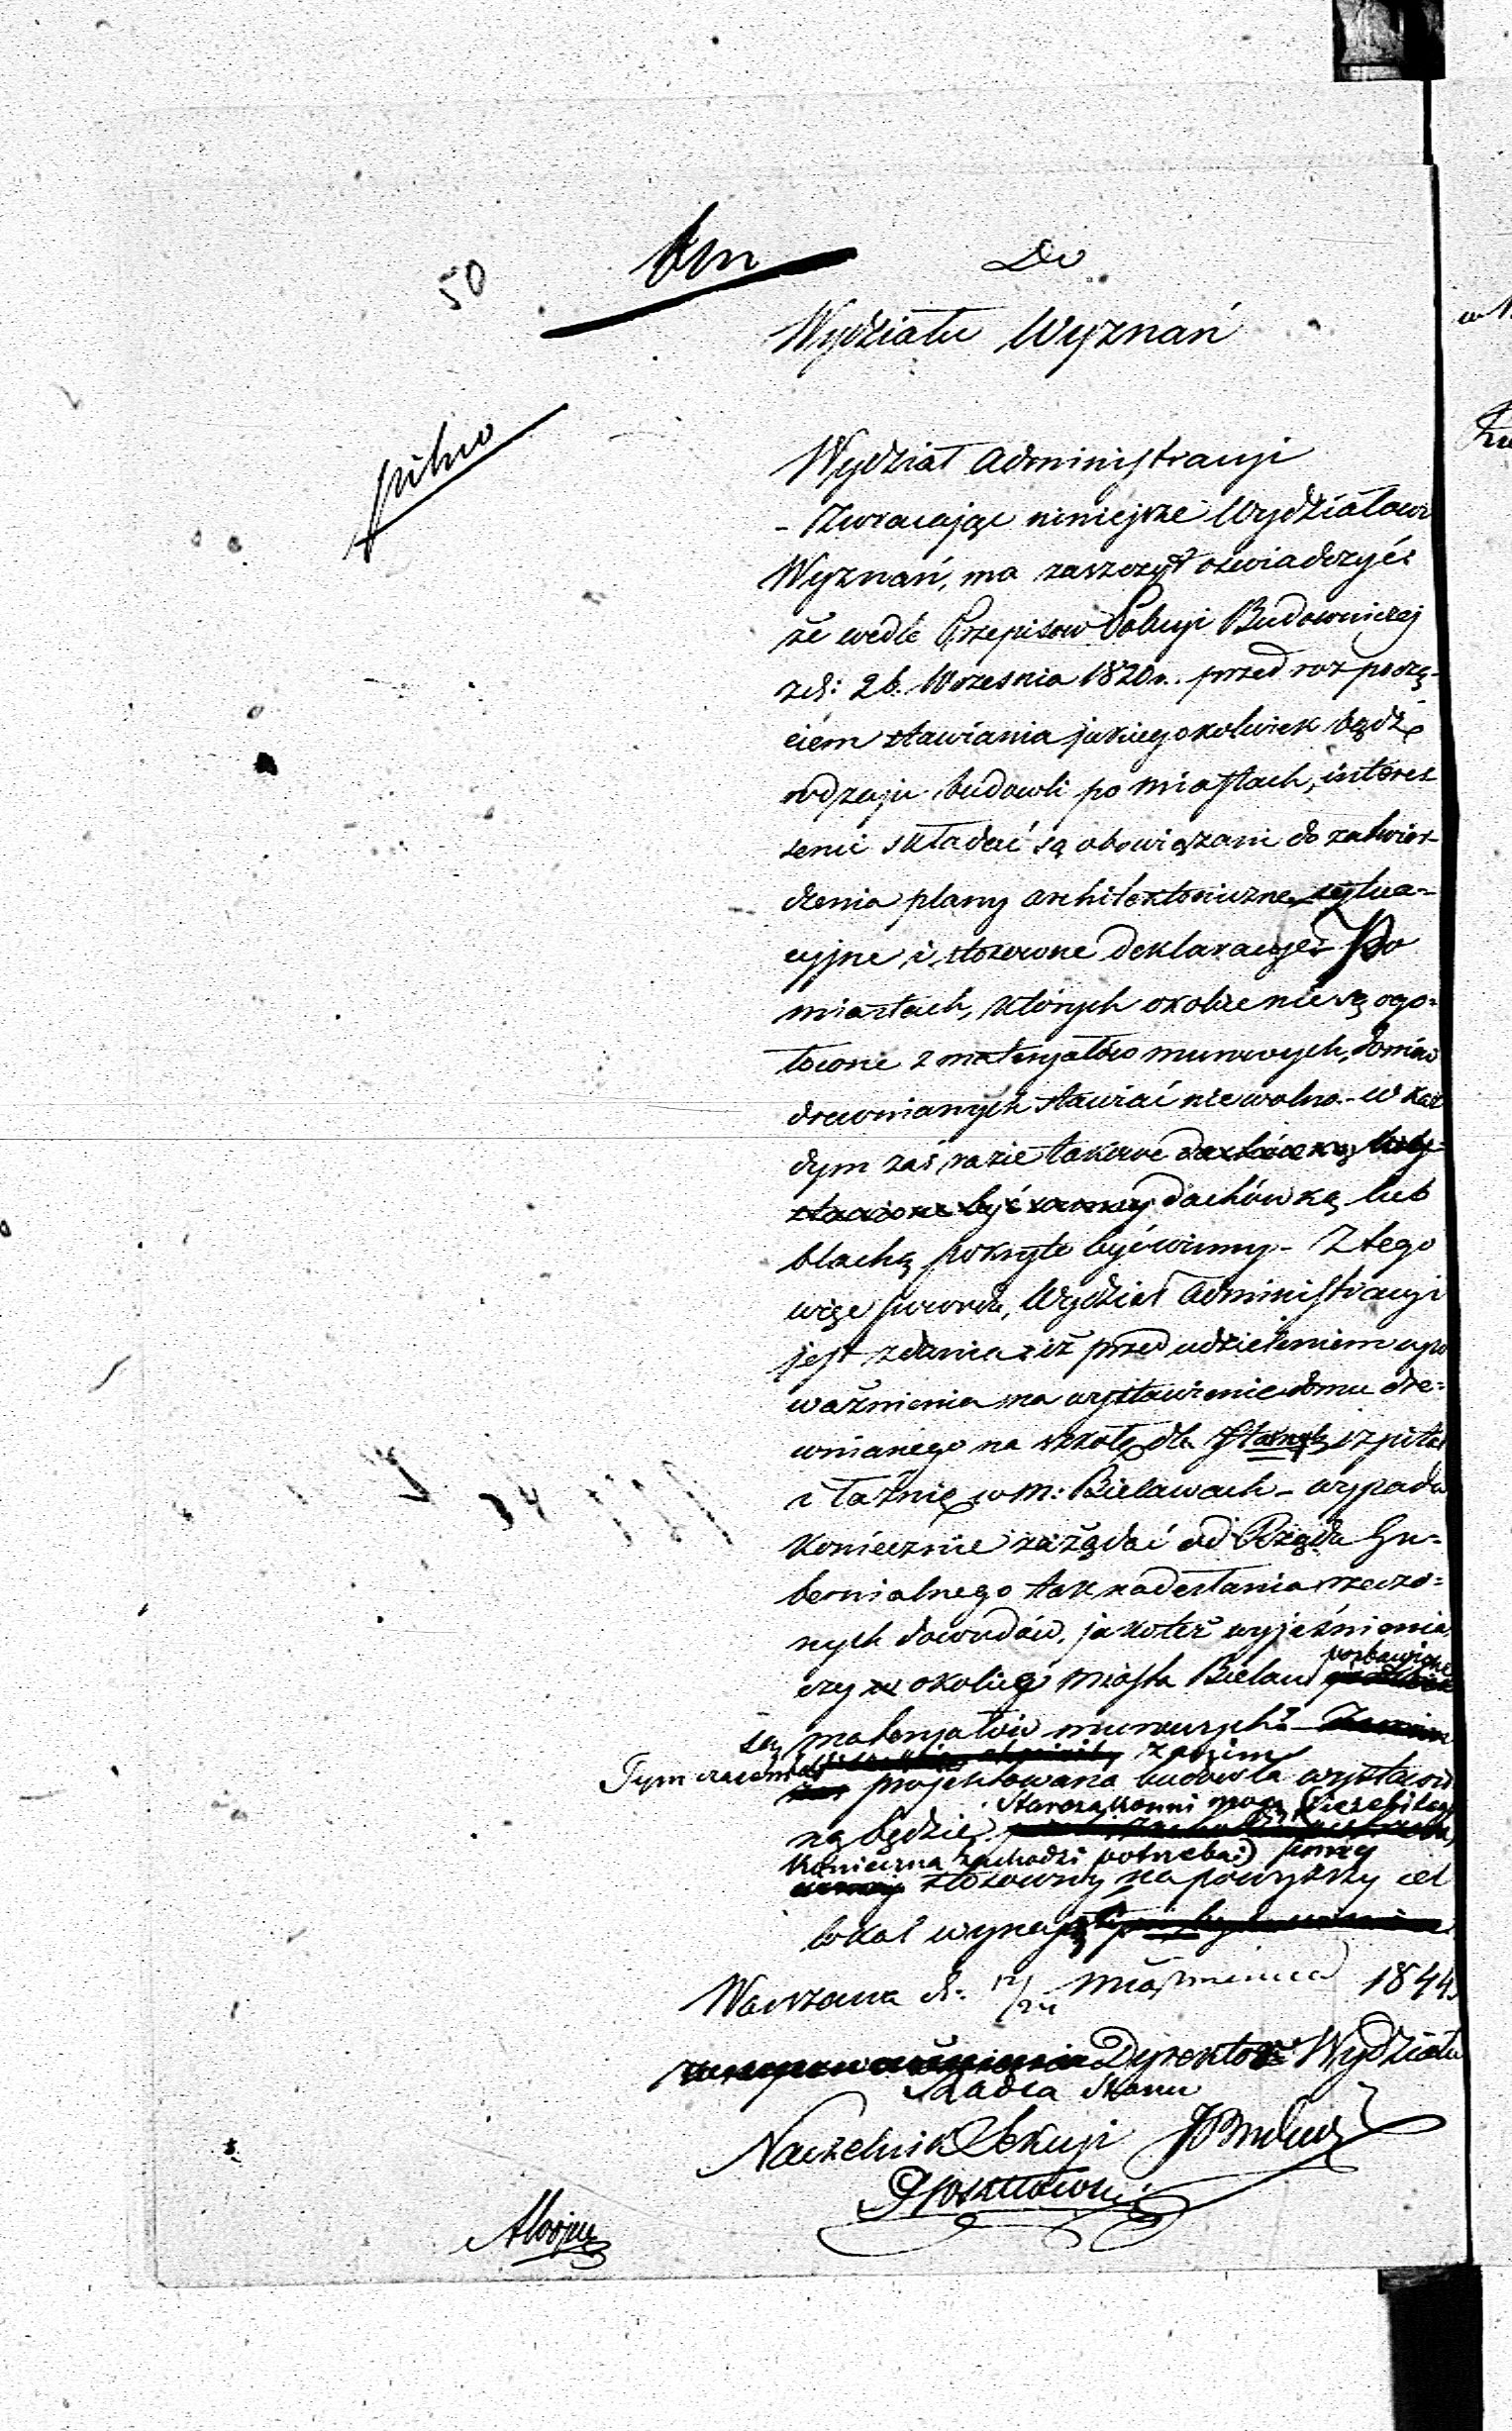 50
Do
Wydziału Wyznań
pilno
Wydział Administracyi
- Zwracając niniejsze Wydziałowi
Wyznań, ma zaszczyt oświadczyć
że wedle Przepisów Policyi Budowniczej
z d: 26. Września 1820 r. przed rozpoczę-
ciem stawiania jakiegokolwiek bądź
rodzaju budowli po miastach, interes
senci składać są obowiązani do zatwier-
dzenia plany architektoniczne, sytua=
cyjne i stosowne deklaracye. Po
miastach, których okolice nie są ogo=
łocone z materyałów murowych, domów
drewnianych stawiać nie wolno - w każ
dym zaś razie takowe
dachówką lub
blachą pokryte być winny - Z tego
więc powodu, Wydział Administracyi
jest zdania iż przed udzieleniem upo
ważnienia na wystawienie domu dre=
wnianego na szkołę dla Starych, szpital
i łaźnię w m: Bielawach - wypada
koniecznie zażądać od Rządu Gu=
bernialnego tak nadesłania rzeczo=
nych dowodów, jakoteż wyjaśnienia,
czy okolice miasta Bielaw pozbawione
są materyałów murowych? -
Tymczasem zanim
projektowana budowla wystawio
ną będzie Starozakonni mogą (jeżeli tego
konieczna zachodzi potrzeba)
stosowny na powyższy cel
lokal wynająć
Warszawa d. 12/24 Października 1844
Dyrektor Wydziału
Radca Stanu
Naczelnik Sekcyi